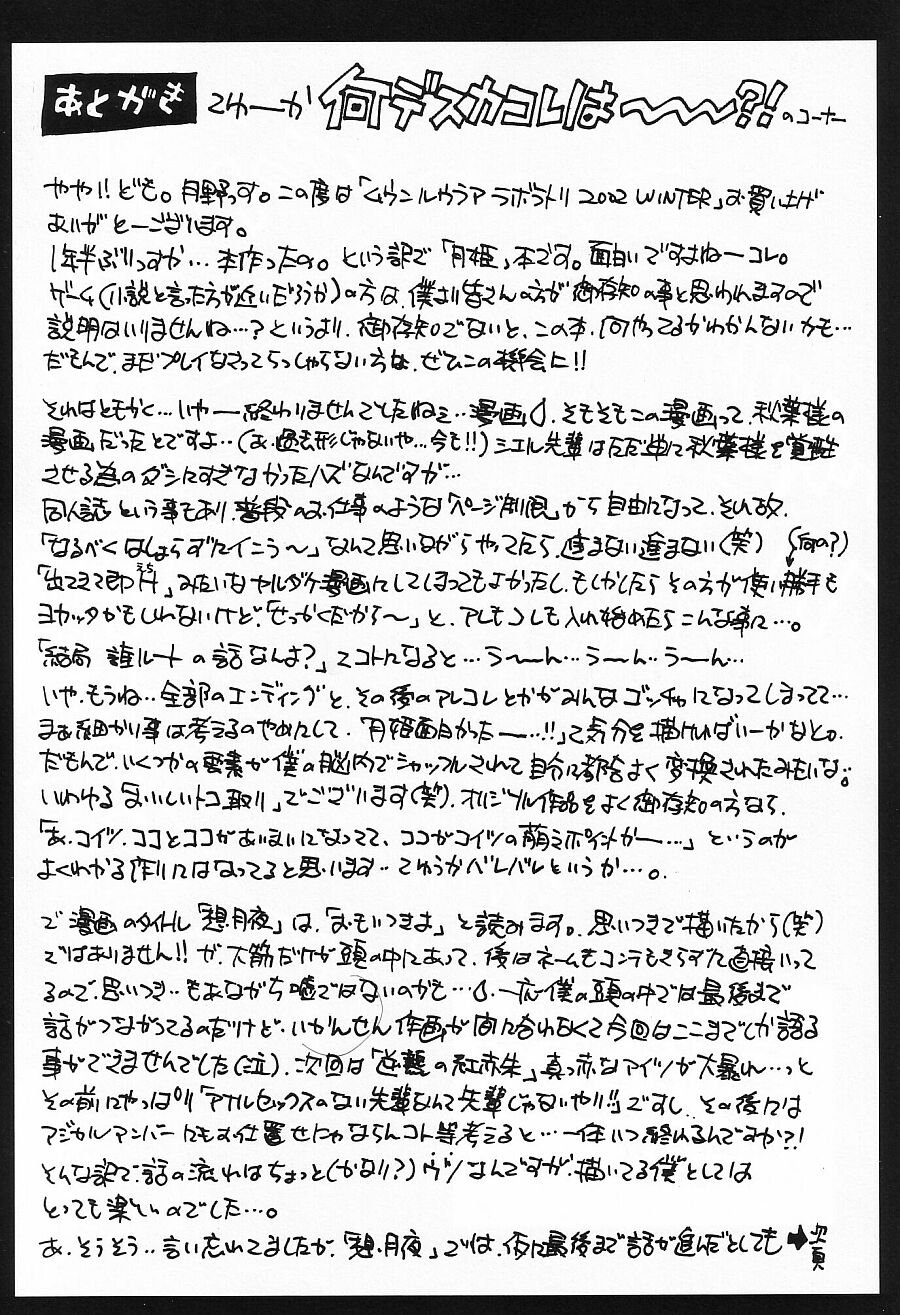 あとがき てゆーか 何デスカコレは〜〜〜?! のコーナー
やや!! ども。月野っす。この度は「ムウンルウラア ラボラトリ 2002 WINTER」お買い上げ
ありがとーございます。
1年半ぶりっすか…本作ったの。という訳で「月姫」本です。面白いですよねーコレ。
ゲーム(小説と言った方が近いだろうか)の方は、僕より皆さんの方が御存知の事と思われますので
説明はいりませんね…?というより、御存知でないと、この本、何やってるかわかんないかも…
だもんで、まだプレイなさってらっしゃらない方は、ぜひこの機会に!!
それはともかく…いやー終わりませんでしたねぇ…漫画。そもそもこの漫画って、秋葉様の
漫画だったとですよ…(あ、過去形じゃないや…今も!!)シエル先輩はただ単に秋葉様を覚醒
させる為のダシにすぎなかったハズなんですが…
同人誌という事もあり、普段のお仕事のような「ページ制限」から自由になって、それ故、
「なるべくはしょらずにイこう〜」なんて思いながらやってたら、進まない進まない(笑) (何の?)
「出てきて即H」みたいなヤルダケ漫画にしてしまってもよかったし、もしかしたらその方が使い勝手も
ヨカッタかもしれないけど、「せっかくだから〜」と、アレもコレも入れ始めたらこんな事に…。
「結局 誰ルートの話なんよ?」てコトになると…う〜〜ん…う〜ん…う〜ん…
いや、もうね…全部のエンディングと、その後のアレコレとかがみんなゴッチャになってしまってて…
まぁ細かい事は考えるのやめにして、「月姫面白かったーー…!!」て気分を描ければいーかなとか。
だもんで、いくつかの要素が僕の脳内でシャッフルされて自分に都合よく変換されたみたいな。
いわゆる「おいしいトコ取り」でございます(笑)。オリジナル作品をよく御存知の方なら、
「あ、コイツ、ココとココがあいまいになってて、ココがコイツの萌えポイントかー…」というのが
よくわかる作りにはなってると思います…てゆうかバレバレというか…。
で漫画のタイトル「想月夜」は、「おもいつきよ」と読みます。思いつきで描いたから(笑)
ではありません!!が、大筋だけが頭の中にあって、後はネームもコンテもきらずに直接いって
るので、思いつき…もあながち嘘ではないのかも…。一応僕の頭の中では最後まで
話がつながってるのだけど、いかんせん作画が間に合わなくて今回はここまでしか語る
事ができませんでした(泣)。次回は「逆襲の紅赤朱」真っ赤なアイツが大暴れ…っと
その前にやっぱり「アナルセックスのない先輩なんて先輩じゃないやい!!」ですし、その後には
マジカルアンバーにもお仕置せにゃならんコト等考えると…一体いつ終れるんですか?!
そんな訳で、話の流れはちょっと(かなり?)ヴツなんですが、描いてる僕としては
とっても楽しいのでした…。
あ、そうそう…言い忘れてましたが、「想月夜」では、仮に最後まで話が進んだとしても ➡次頁